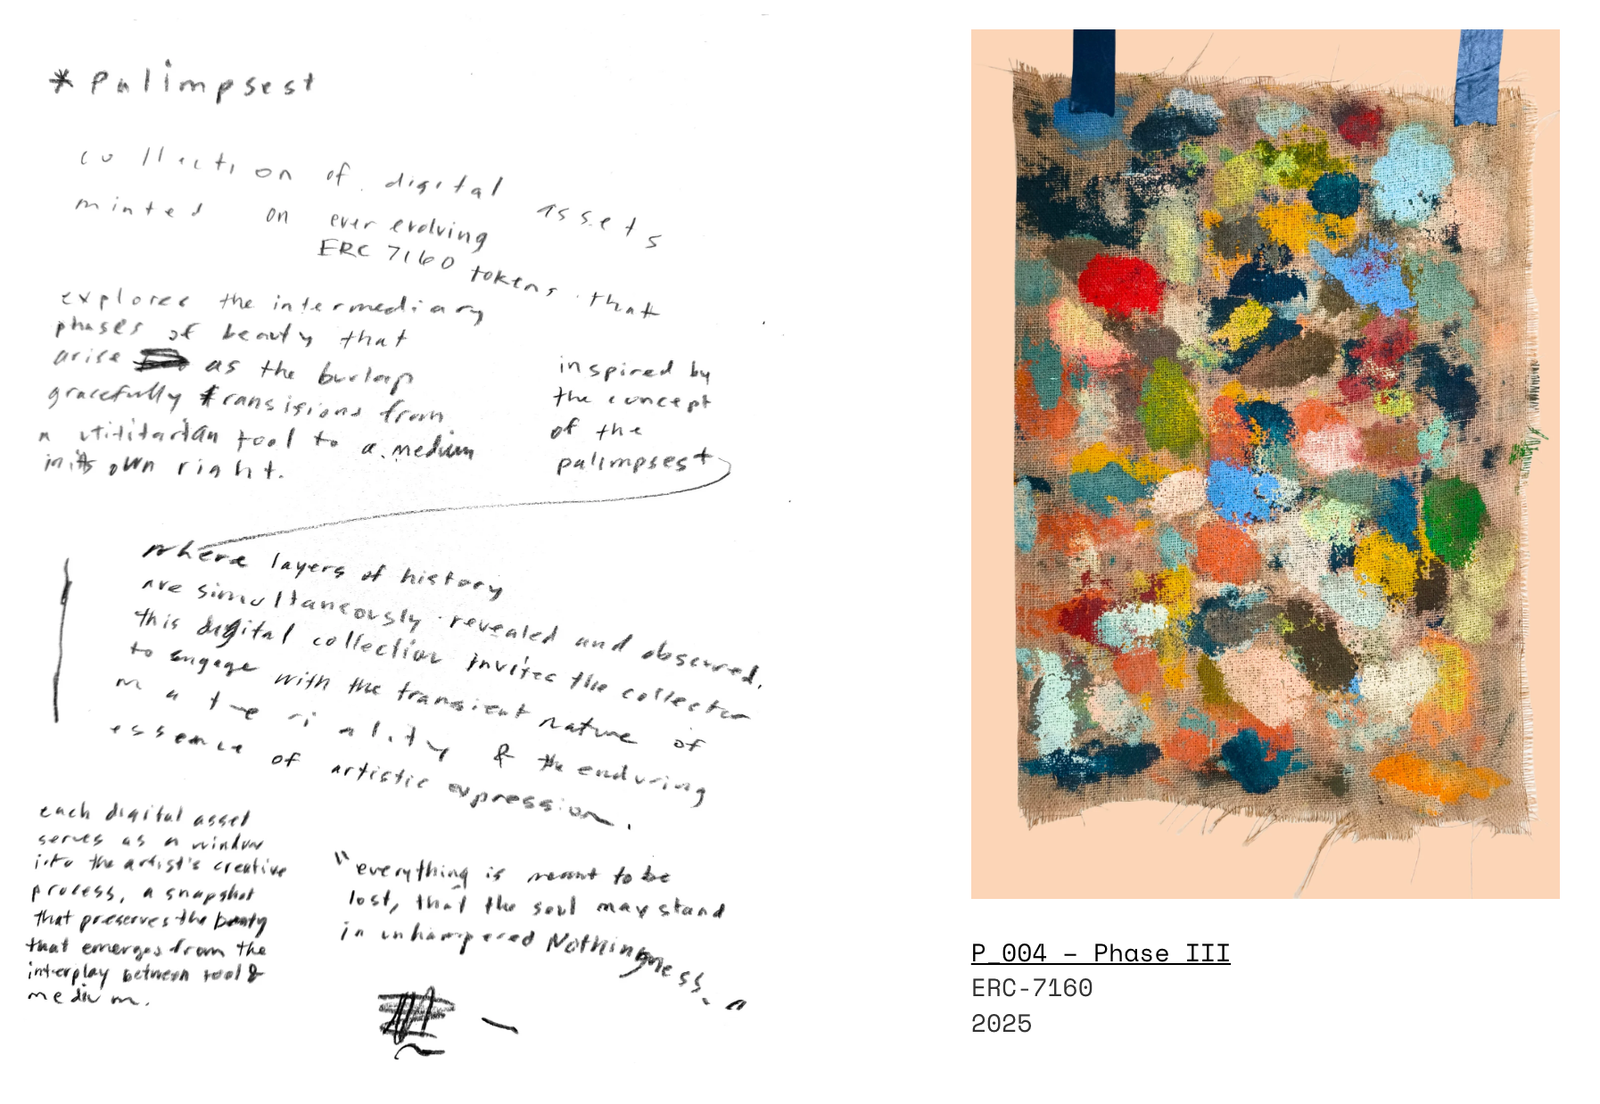 * palimpsest
collection of digital assets
minted on ever evolving
ERC 7160 tokens that
explores the intermediary
phases of beauty that
arise as the burlap
gracefully transisions from
a utilitarian tool to a medium
in its own right.
inspired by
the concept
of the
palimpsest
where layers of history
are simultaneously revealed and obscured.
this digital collection invites the collector
to engage with the transient nature of
materiality & the enduring
essence of artistic expression.
each digital asset
serves as a window
into the artist's creative
process, a snapshot
that preserves the beauty
that emerges from the
interplay between tool &
medium.
"everything is meant to be
lost, that the soul may stand
in unhampered Nothingness."
P_004 – Phase III
ERC-7160
2025